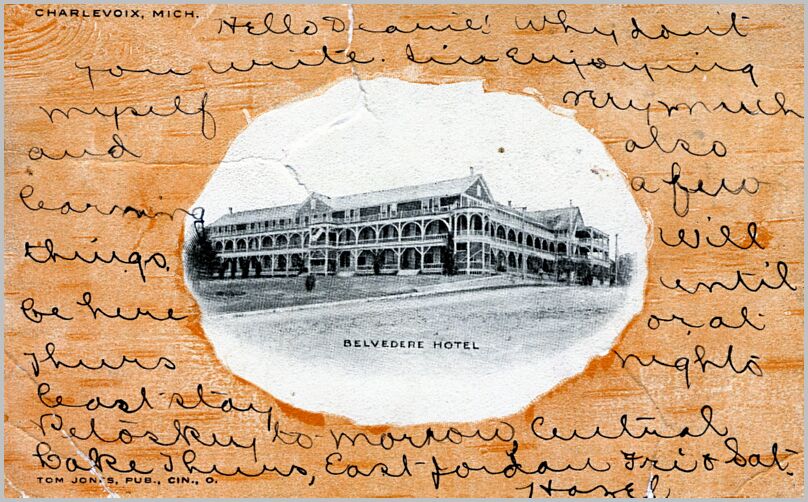 CHARLEVOIX, MICH.
Hello Dearie! Why don't
you write. I'm Enjoying
myself very much
and also
learning a few
things. Will
be here until
Thurs or at
least stay nights
Petoskey to-morrow Central
Lake Thurs, East Jordan Fri & Sat.
Hazel
BELVEDERE HOTEL
TOM JONES, PUB., CIN., O.